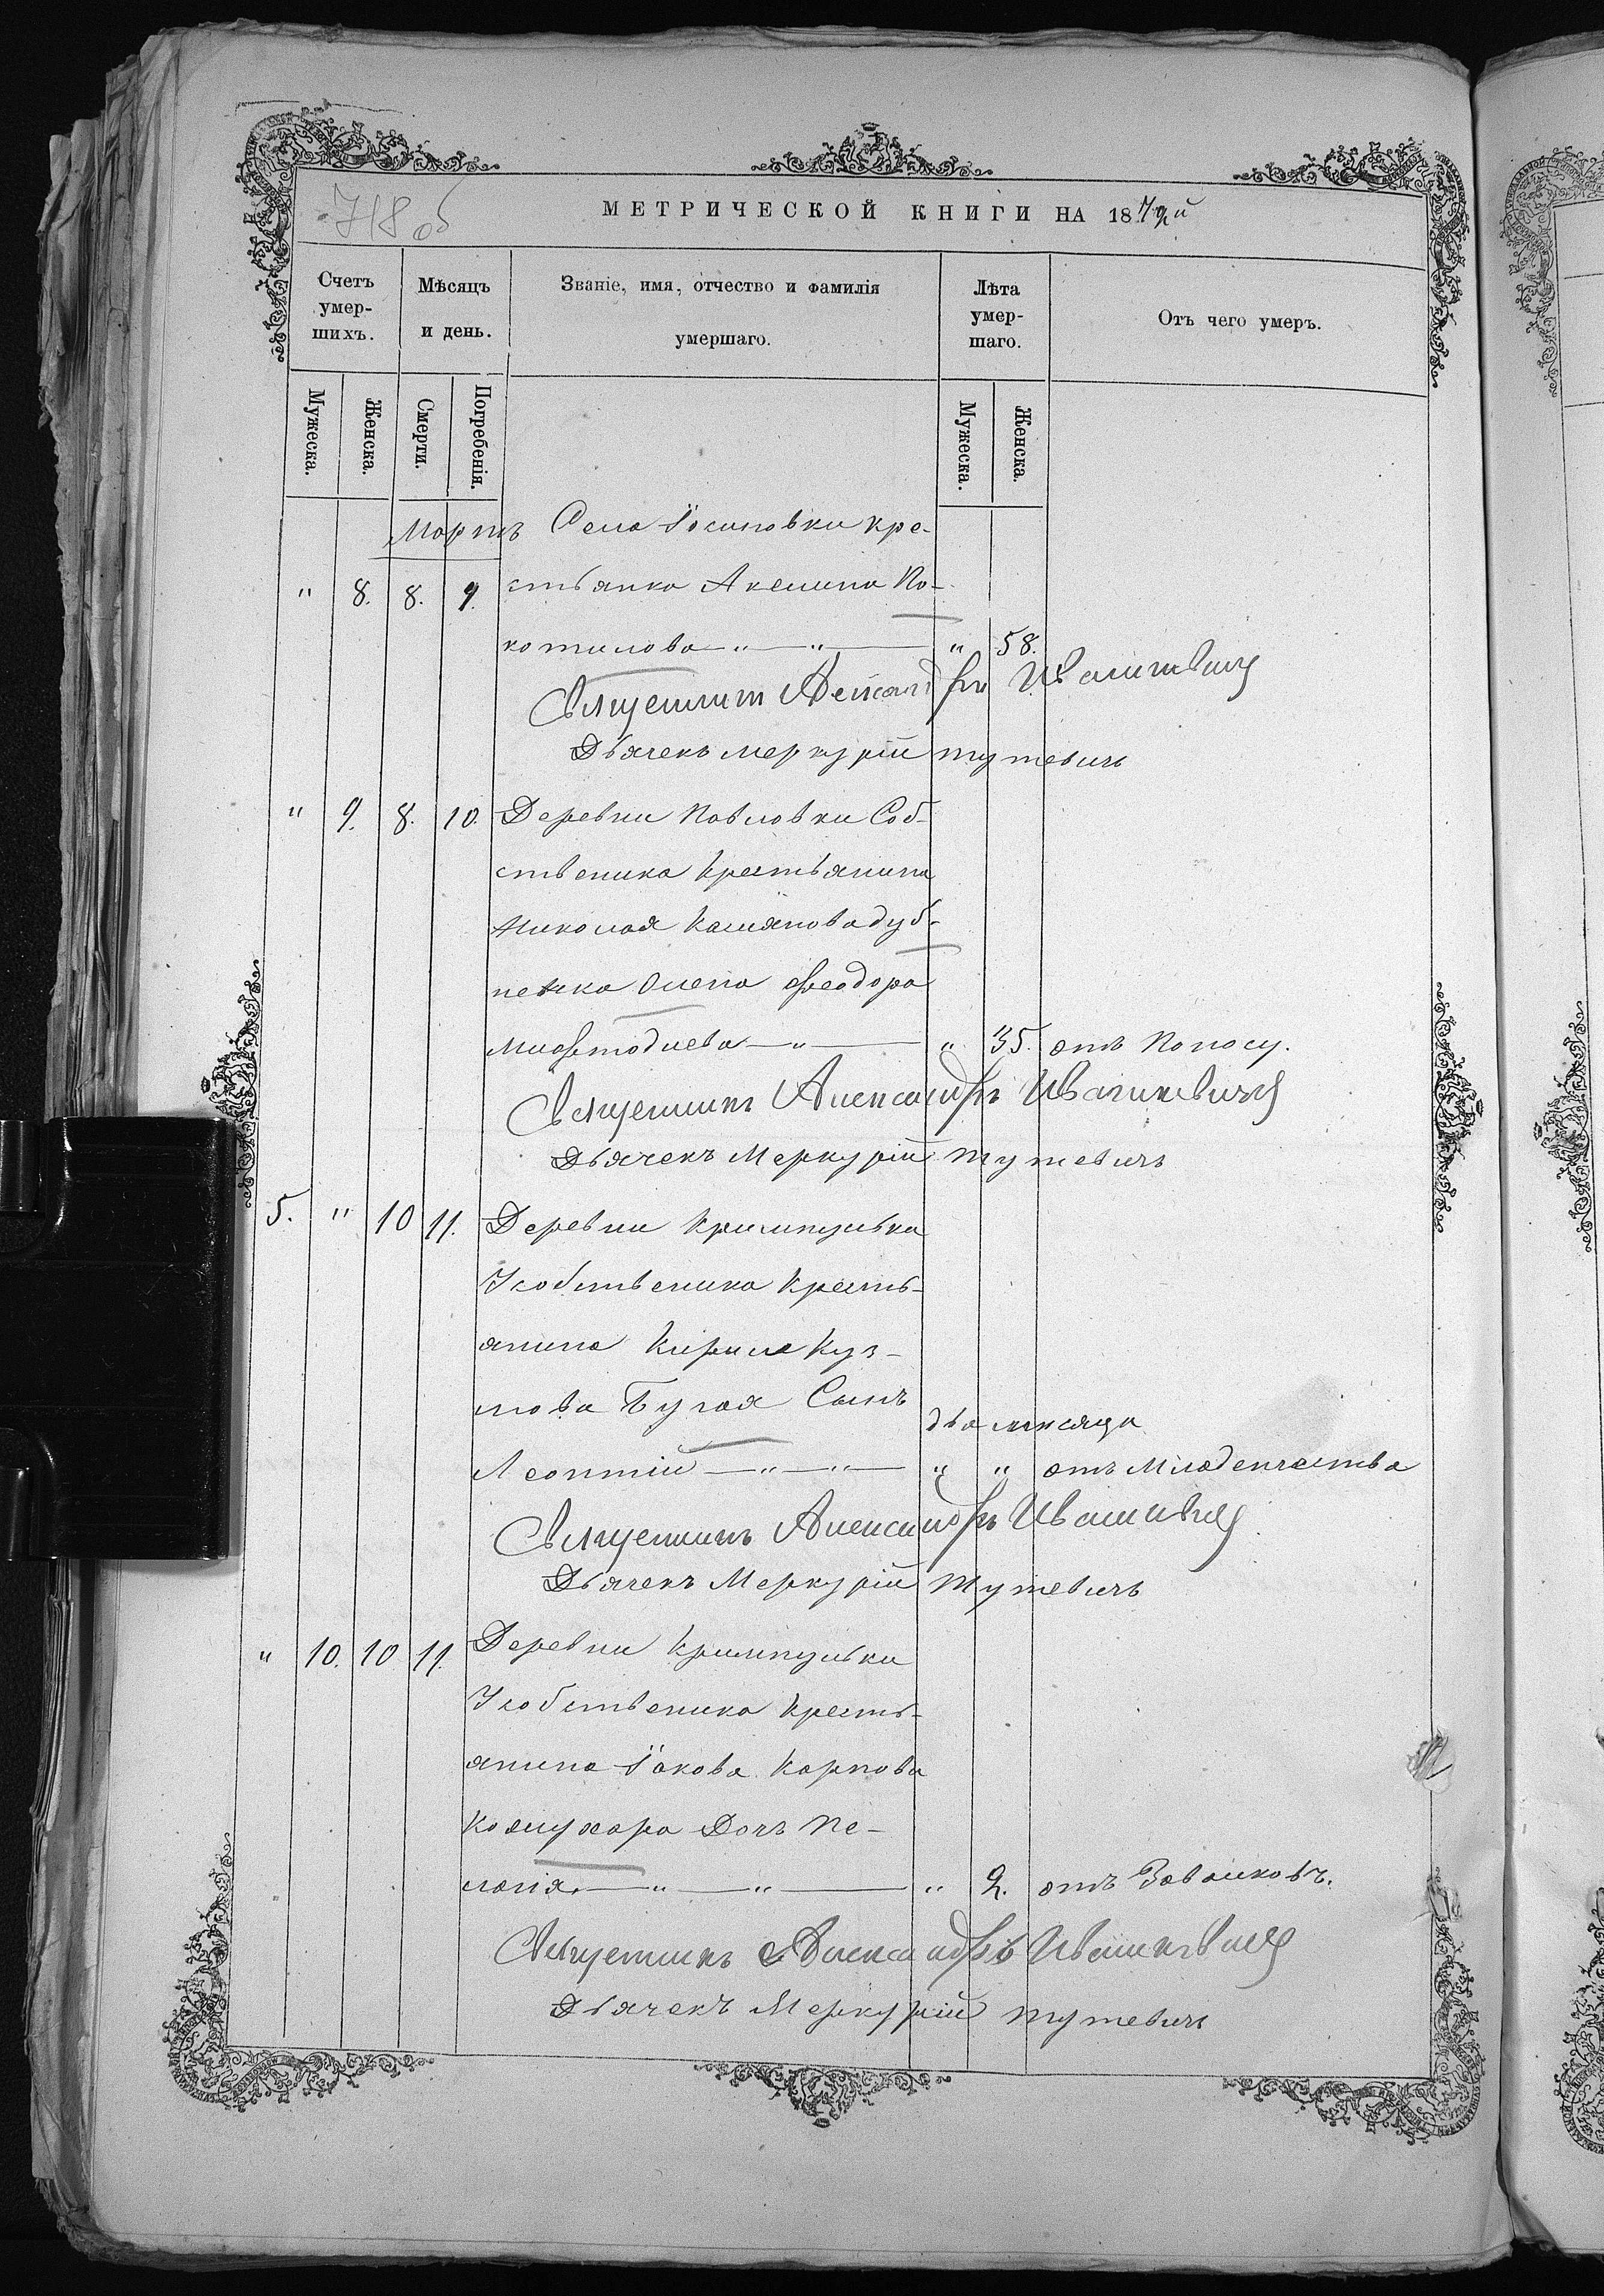 718 об
МЕТРИЧЕСКОЙ КНИГИ НА 1872й
Счетъ умер-шихъ.
Мѣсяцъ и день.
Званіе, имя, отчество и фамилія умершаго.
Лѣта умер-шаго.
Отъ чего умеръ.
Мужеска.
Женска.
Смерти.
Погребенія.
Мужеска.
Женска.
Мартъ Села Іосиповки кре-
" 8. 8. 9. стьянка Акелина По-
котилова " " " 58.
Священникъ Александръ Ивашкевичъ
Дьячекъ Меркурій Тутевичъ
" 9. 8. 10. Деревни Павловки Соб-
ственика Крестьянина
Николая Касіянова Дуб-
невка Олена Феодора
" " 35. отъ Поносу.
Священникъ Александръ Ивашкевичъ
Дьячекъ Меркурій Тутевичъ
5. " 10 11. Деревни Кримпульки
У собственика Кресть-
янина Кирила Куз-
мова Бугая Сынъ
два месяца
Леонтій " " " " отъ Младенчества
Священникъ Александръ Ивашкевичъ
Дьячекъ Меркурій Тутевичъ
" 10. 10 11. Деревни Кримпульки
У собственика Кресть-
янина Іакова Карпова
Кожухара Дочь Пе-
лагія " " " 2. отъ Завалковъ.
Священникъ Александръ Ивашкевичъ
Дьячекъ Меркурій Тутевичъ